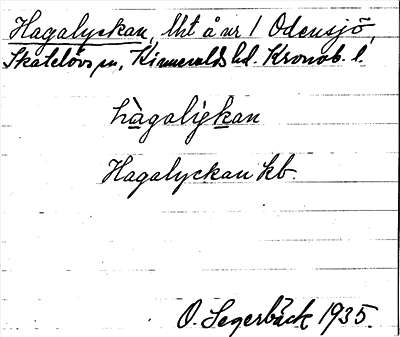 Hagalyckan, lht å nr 1 Odensjö,
Skatelövs sn, Kinnevalds hd. Kronob. l.
hàgaligkan
Hagalyckan kb.
O. Segerbäck 1935.